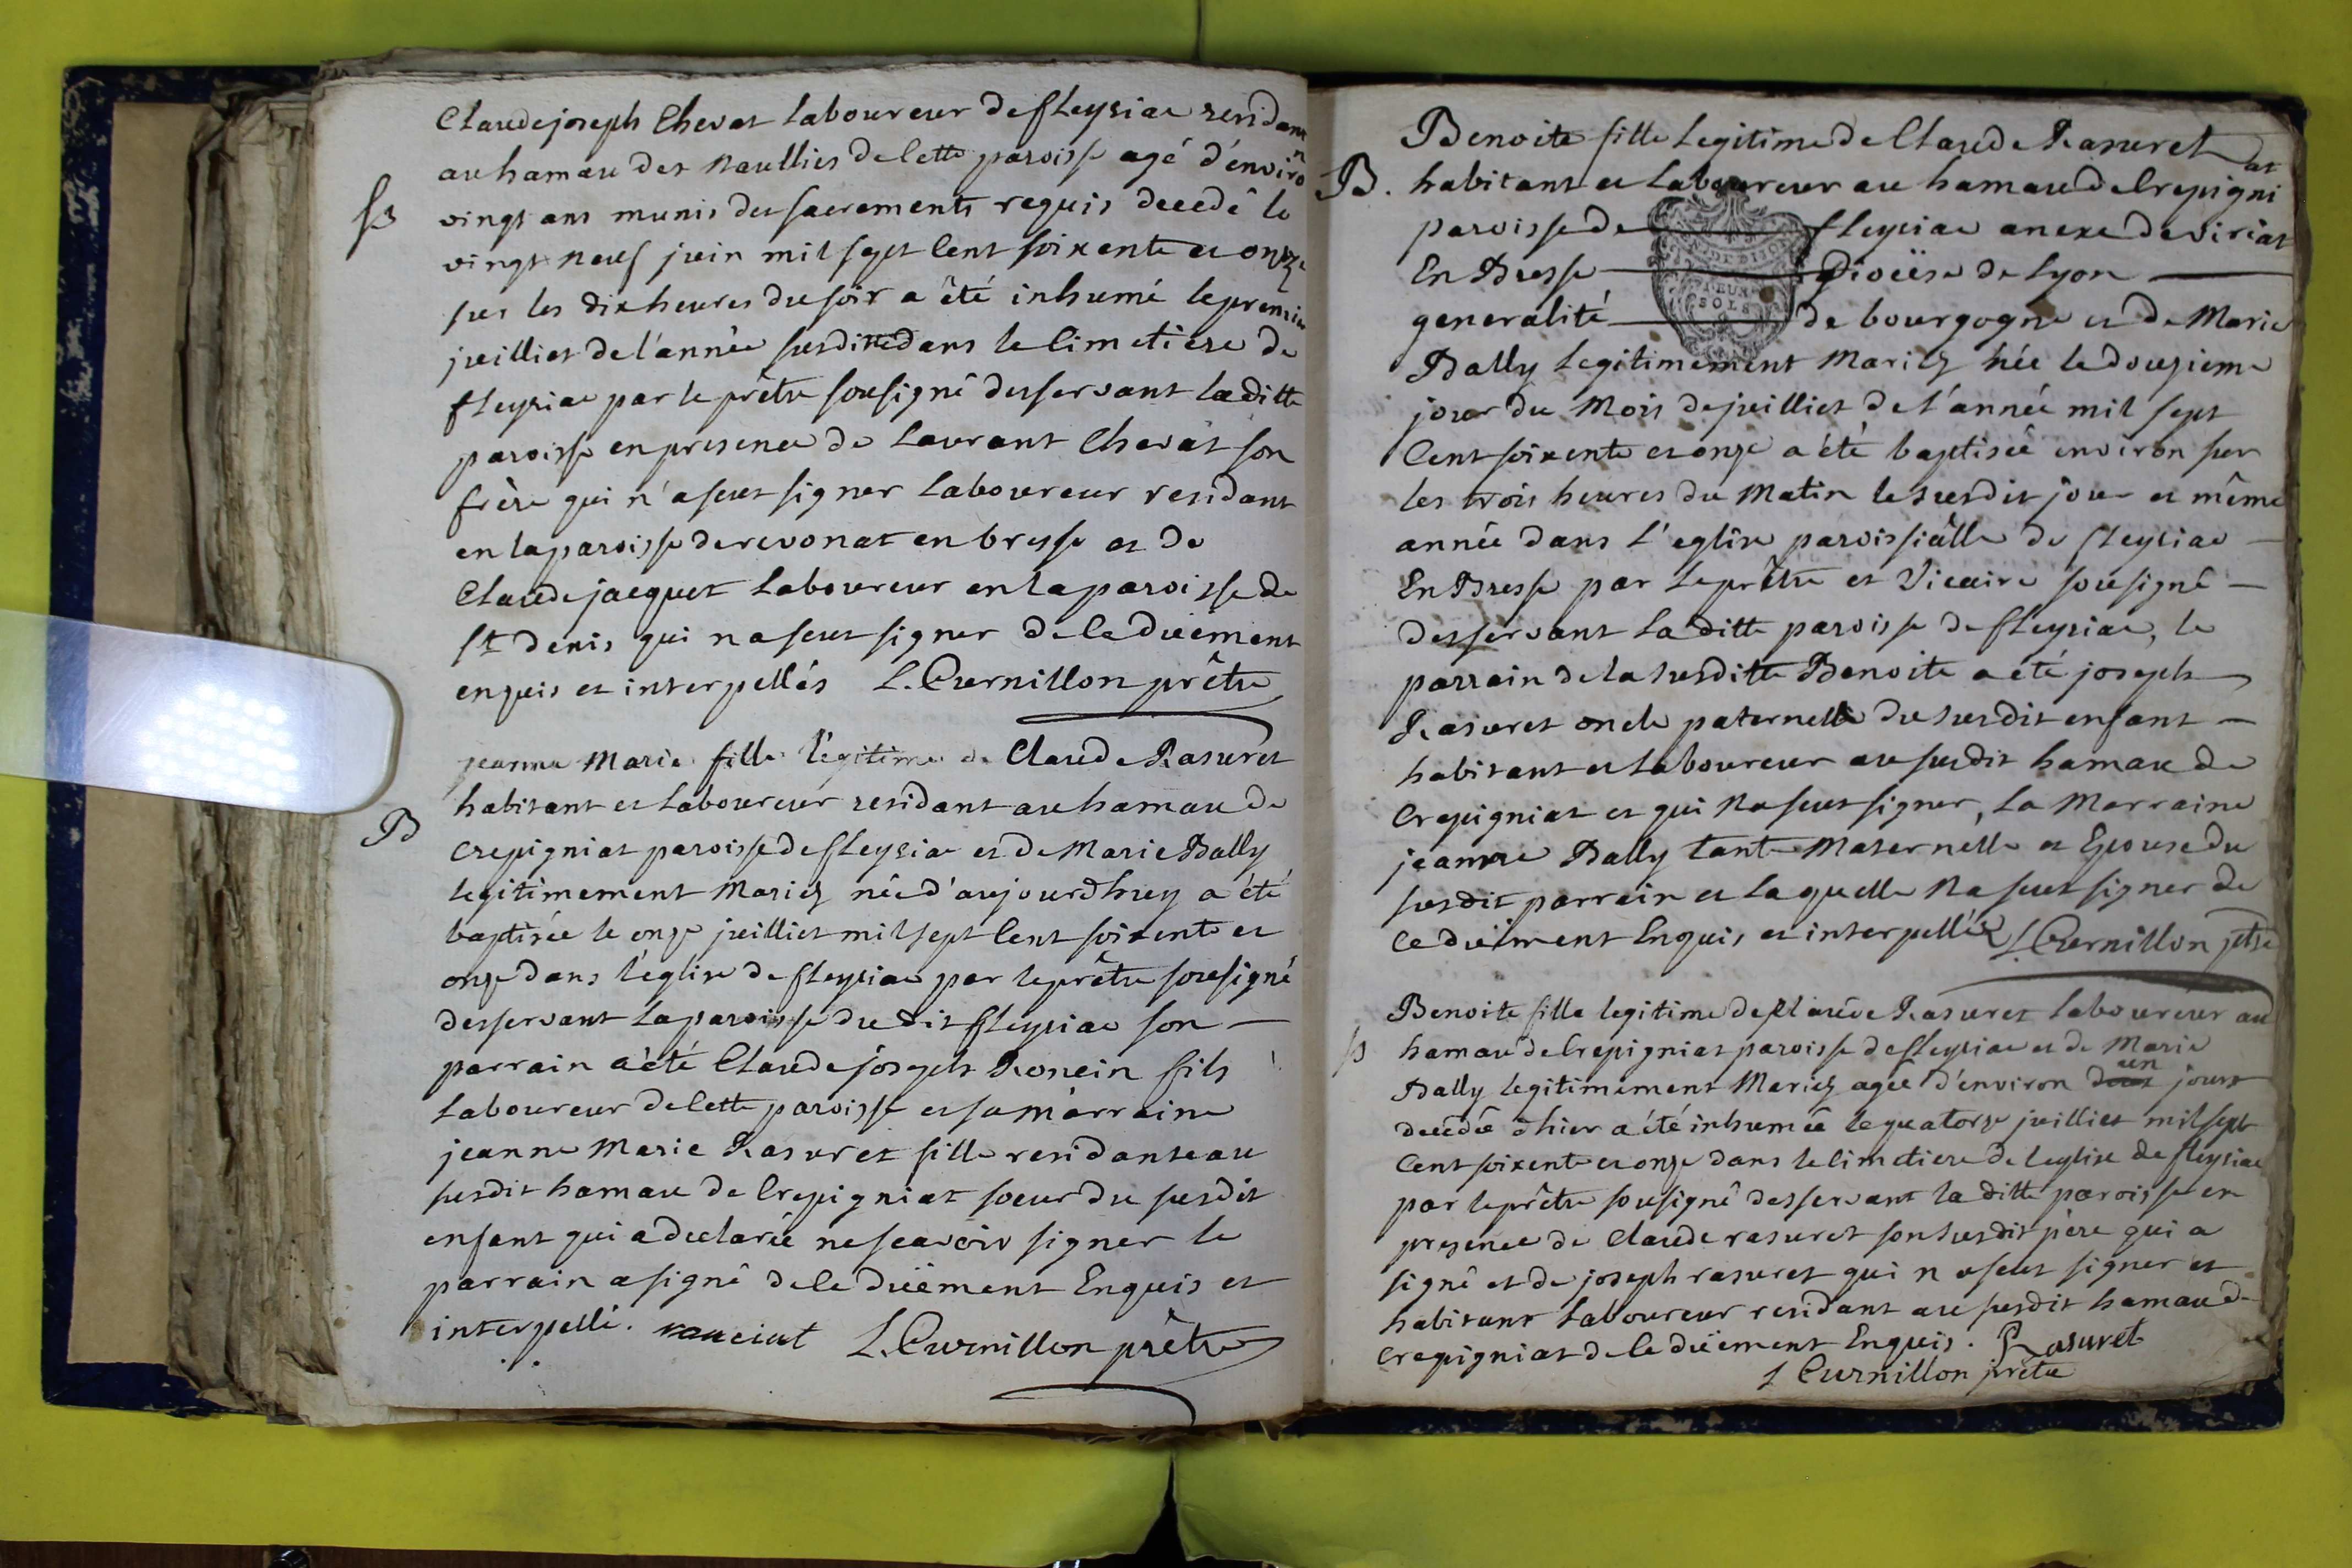 Claude joseph Chevat laboureur de fleyriac resident
au hamau des Naullies de Cette paroisse agé d'environ
S vingt ans munis des sacrements requis decedé le
vingt neuf juin mil sept Cent soixente et onze
sur les dix heures du soir a été inhumé le premier
juilliet de l'année susditte dans le Cimetiere de
fleyriac par le prêtre sousigné desservant laditte
paroisse en presence de Laurant Chevat son
frère qui n'a seut signer laboureur residant
en la paroisse de revonat en bresse et de
Claude jacquet laboureur en la paroisse de
St denis qui n a seut signer de Ce duëment
enquis et interpellés L. Curnillon prêtre
jeanne Marie fille légitime de Claude Rasuret
habitant et laboureur residant au hamau de
B Crepigniat paroisse de fleyriac et de Marie Bally
legitimement Mariez née d'aujourdhuy a été
baptisée le onze juilliet mil sept Cent soixente et
onze dans l'église de fleyriac par le prêtre sousigné
desservant la paroisse du dit fleyriac son
parrain a été Claude joseph fils
laboureur de Cette paroisse et sa marraine
jeanne Marie Rasuret fille residante au
susdit hamau de Crepigniat soeur du susdit
enfant qui a declarée ne scavoir signer le
parrain a signé de Ce duëment Enquis et
interpellé. L. Curnillon prêtre
Benoite fille legitime de Claude Rasuret
B. habitant et laboureur au hamau de Crepigniat
paroisse de fleyriac anexe de viriat
En Bresse Diocèse de Lyon
generalité de bourgogne et de Marie
Bally legitimement Mariez née le douzieme
jour du Mois de juilliet de l'année mil sept
Cent soixente et onze a été baptisée environ sur
les trois heures du Matin le susdit jour et même
année dans l'eglise paroissiâlle de fleyriac
En Bresse par le prêtre et Vicaire sousigné
desservant la ditte paroisse de fleyriac, le
parrain de la susditte Benoite a été joseph
Rasuret oncle paternelle du susdit enfant
habitant et laboureur au susdit hamau de
Crepigniat et qui Na seut signer, la Marraine
jeanne Bally tante Maternelle et Epouse du
susdit parrain et laquelle Na seut signer de
Ce duëment Enquis et interpellée L. Curnillon ptre
Benoite fille legitime de Claude Rasuret laboureur au
S hamau de Crepigniat paroisse de fleyriac et de Marie
Bally legitimement Mariez agée d'environ deux un jours
decedée d'hier a été inhumée le quatorze juilliet mil sept
Cent soixente et onze dans le Cimetiere de l'eglise de fleyriac
par le prêtre sousigné desservant la ditte paroisse en
presence de Claude rasuret son susdit père qui a
signé et de joseph rasuret qui n a seut signer et
habitant laboureur residant au susdit hamau de
Crepigniat de Ce duëment Enquis. Rasuret
L Curnillon prêtre